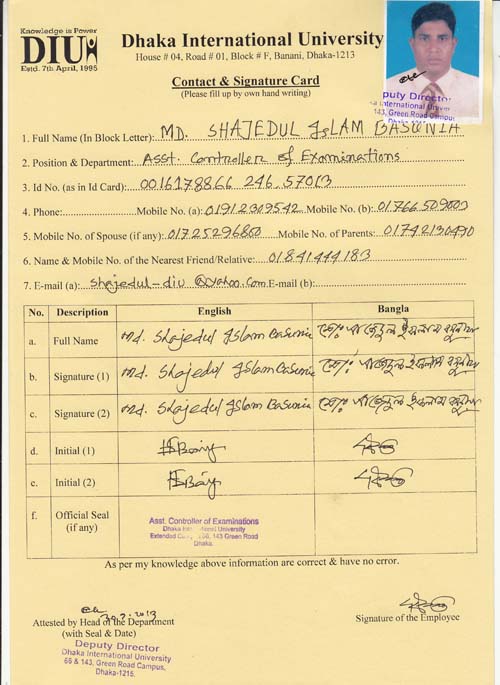 Knowledge is Power
DIU
Estd. 7th April, 1995
Dhaka International University
House # 04, Road # 01, Block # F, Banani, Dhaka-1213
Contact & Signature Card
(Please fill up by own hand writing)
Deputy Director
Dhaka International Univer
143, Green Road Campus
1. Full Name (In Block Letter): MD. SHAJEDUL ISLAM BASUNIA
2. Position & Department: Asst. Controller of Examinations
3. Id No. (as in Id Card): 0016178866 246.57013
4. Phone: Mobile No. (a): 01912309542 Mobile No. (b): 01766509003
5. Mobile No. of Spouse (if any): 01725296860 Mobile No. of Parents: 01742130490
6. Name & Mobile No. of the Nearest Friend/Relative: 01841444183
7. E-mail (a): shajedul-diu @yahoo.com E-mail (b):
No. Description English Bangla
a. Full Name Md. Shajedul Islam Basunia মোঃ সাজেদুল ইসলাম বসুনিয়া
b. Signature (1) Md. Shajedul Islam Basunia মোঃ সাজেদুল ইসলাম বসুনিয়া
c. Signature (2) Md. Shajedul Islam Basunia মোঃ সাজেদুল ইসলাম বসুনিয়া
d. Initial (1)
e. Initial (2)
f. Official Seal (if any)
Asst. Controller of Examinations
Dhaka International University
Extended Campus, 66, 143 Green Road
Dhaka.
As per my knowledge above information are correct & have no error.
Attested by Head of the Department
(with Seal & Date)
Signature of the Employee
Deputy Director
Dhaka International University
66 & 143, Green Road Campus,
Dhaka-1215.